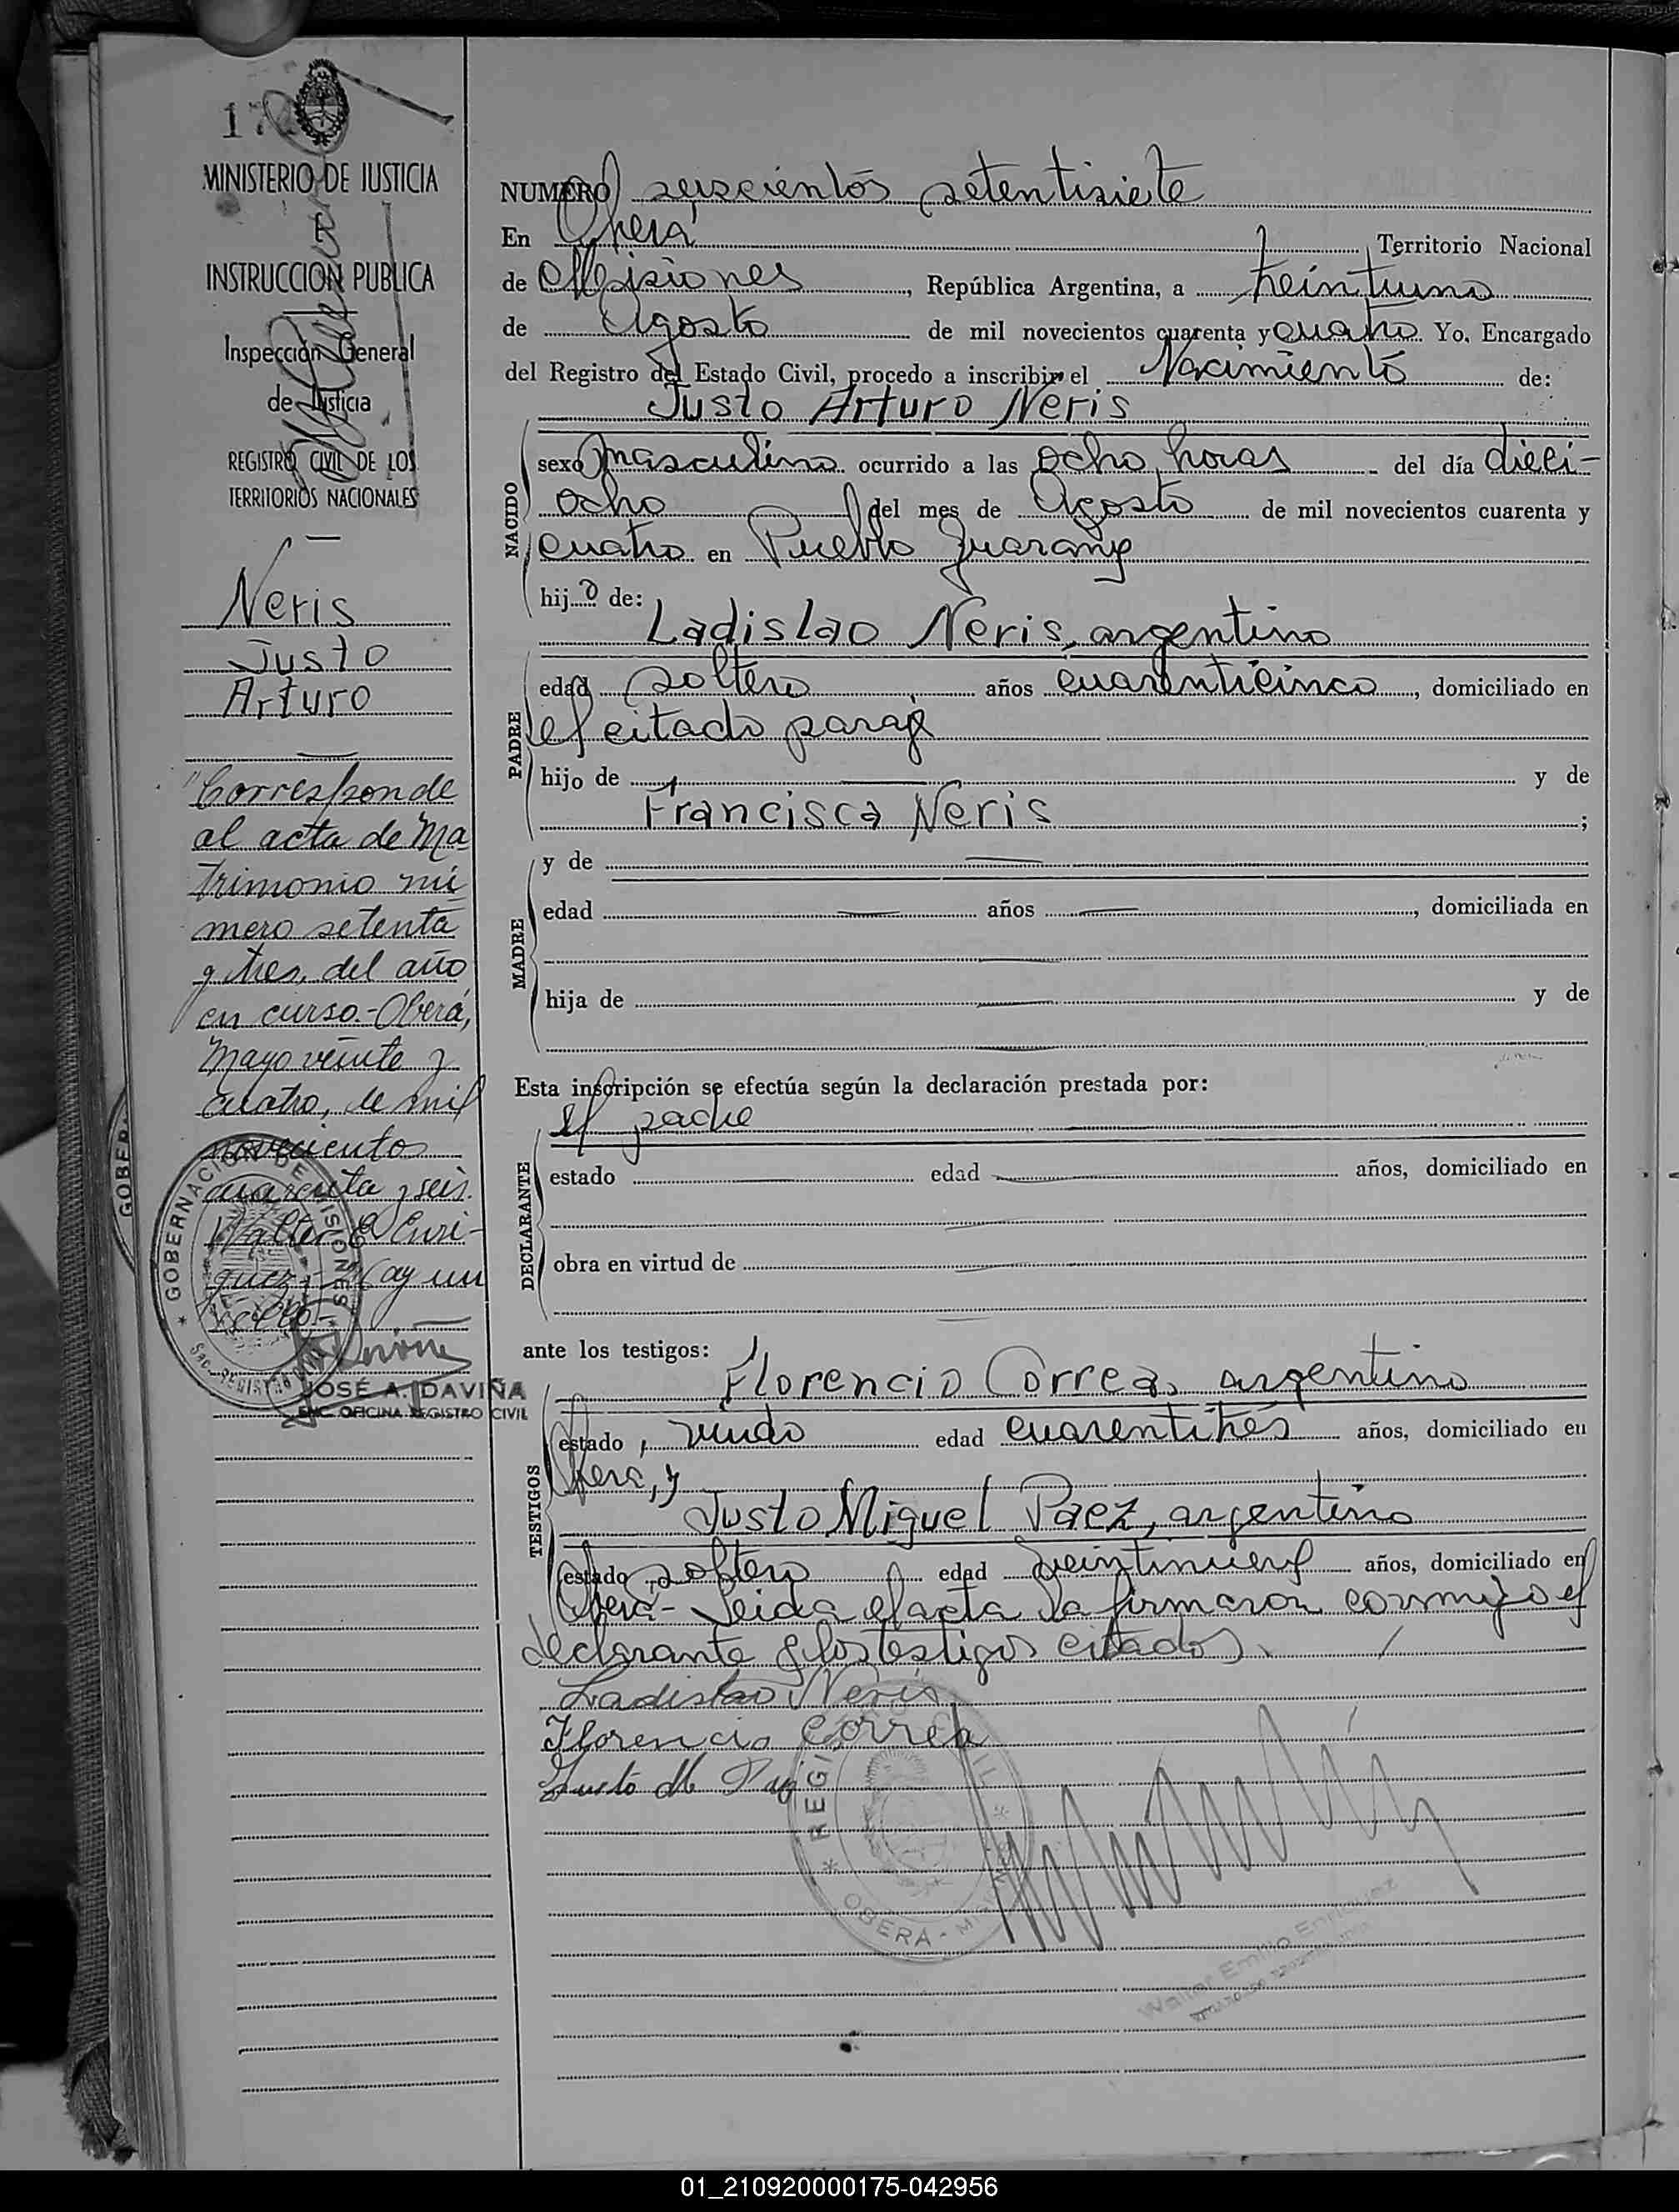 MINISTERIO DE JUSTICIA
E
INSTRUCCION PUBLICA
Inspección General
de Justicia
REGISTRO CIVIL DE LOS
TERRITORIOS NACIONALES
Neris
Justo
Arturo
"Corresponde
al acta de Ma
trimonio nú
mero setenta
y tres, del año
en curso.- Oberá,
Mayo veinte y
cuatro, de mil
novecientos
cuarenta y seis.
Walter E Enri-
quez - Hay un
sello -
JOSÉ A. DAVIÑA
ENC. OFICINA REGISTRO CIVIL
GOBERNACION DE MISIONES
NUMERO seiscientos setentisiete
En Oberá Territorio Nacional
de Misiones, República Argentina, a treintiuno
de Agosto de mil novecientos cuarenta y cuatro Yo, Encargado
del Registro del Estado Civil, procedo a inscribir el Nacimiento de:
Justo Arturo Neris
NACIDO
sexo masculino ocurrido a las ocho horas del día dieci-
ocho del mes de Agosto de mil novecientos cuarenta y
cuatro en Pueblo Guarany
hijo de:
PADRE
Ladislao Neris, argentino
edad soltero, años cuarenticinco, domiciliado en
el citado paraje
hijo de y de
Francisca Neris ;
MADRE
y de
edad años , domiciliada en
hija de y de
Esta inscripción se efectúa según la declaración prestada por:
DECLARANTE
el padre
estado edad años, domiciliado en
obra en virtud de
ante los testigos:
TESTIGOS
Florencio Correa, argentino
estado, viudo edad cuarentitres años, domiciliado en
Oberá, y
Justo Miguel Paez, argentino
estado soltero edad veintinueve años, domiciliado en
Oberá - Leida el acta la firmaron conmigo el
declarante y los testigos citados.
Ladislao Neris
Florencio Correa
Justo M Paez
REGI
OBERÁ - MI
Walter Emilio Enriquez
01_210920000175-042956